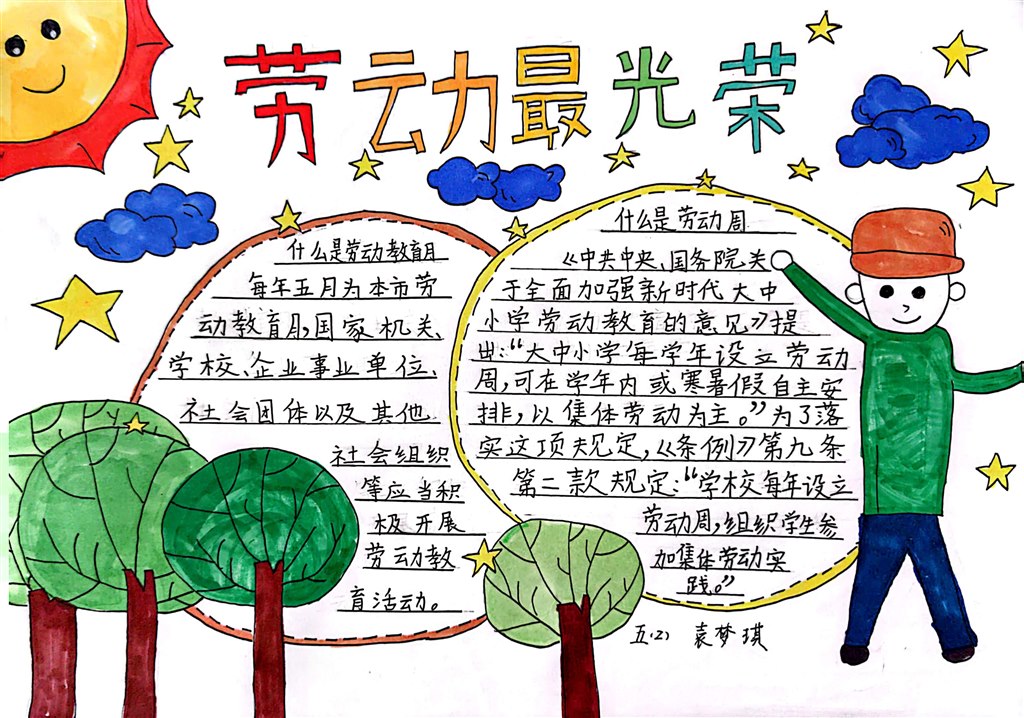 劳动最光荣
什么是劳动教育月
每年五月为本市劳
动教育月,国家机关、
学校、企业事业单位、
社会团体以及其他
社会组织
等应当积
极开展
劳动教
育活动。
什么是劳动周
《中共中央、国务院关
于全面加强新时代大中
小学劳动教育的意见》提
出:“大中小学每学年设立劳动
周,可在学年内或寒暑假自主安
排,以集体劳动为主。”为了落
实这项规定,《条例》第九条
第二款规定:“学校每年设立
劳动周,组织学生参
加集体劳动实
践。”
五(2) 袁梦琪